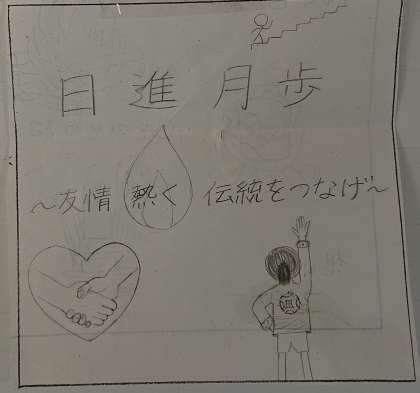 日進月歩
〜友情 熱く 伝統をつなげ〜